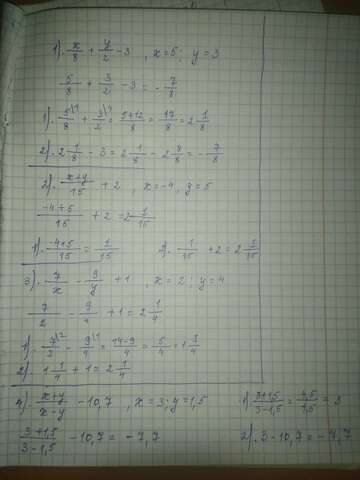 1). x/8 + y/2 - 3 , x=5; y=3
5/8 + 3/2 - 3 = - 7/8
1). 5\1/8 + 3\4/2 = 5+12/8 = 17/8 = 2 1/8
2). 2 1/8 - 3 = 2 1/8 - 2 8/8 = - 7/8
2). x+y/15 + 2 , x=-4, y=5
-4+5/15 + 2 = 2 1/15
1). -4+5/15 = 1/15 2). 1/15 + 2 = 2 1/15
3). 7/x - 9/y + 1 , x = 2 ; y = 4
7/2 - 9/4 + 1 = 2 1/4
1). 7\2/2 - 9\1/4 = 14-9/4 = 5/4 = 1 1/4
2). 1 1/4 + 1 = 2 1/4
4). x+y/x-y - 10,7 , x=3; y=1,5 1). 3+1,5/3-1,5 = 4,5/1,5 = 3
3+1,5/3-1,5 - 10,7 = - 7,7 2). 3-10,7 = - 7,7